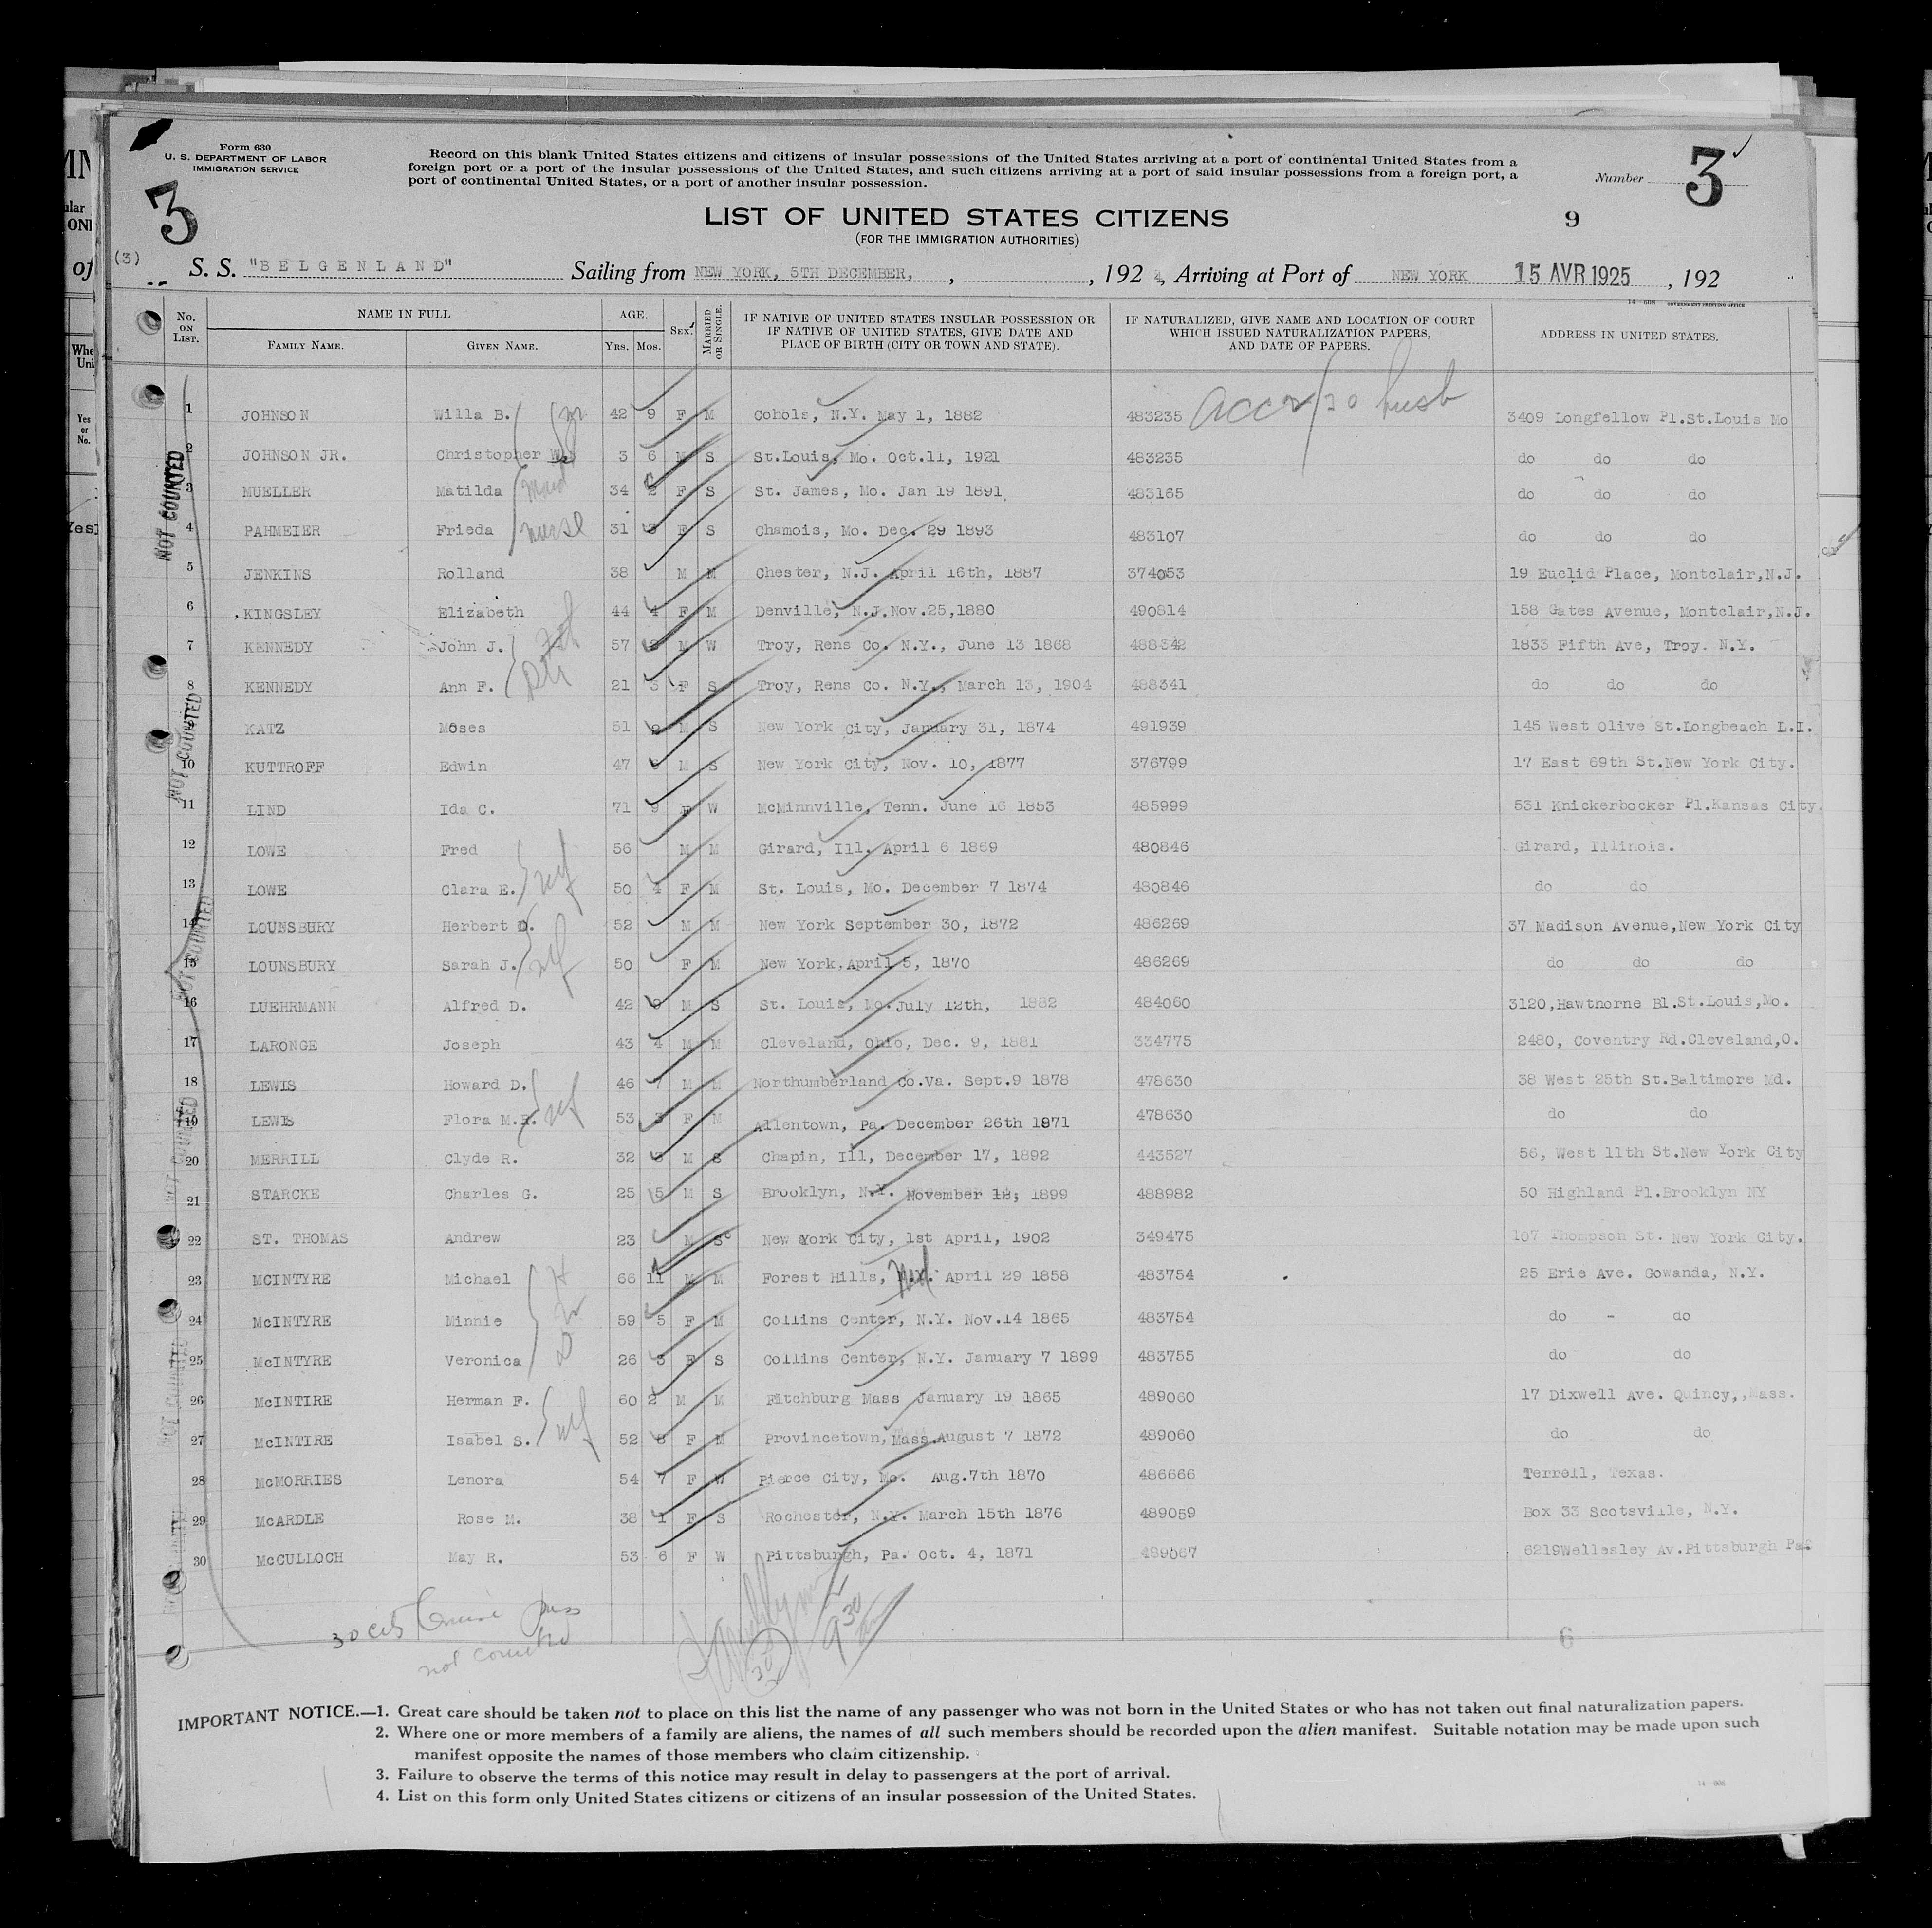 Form 630
U. S. DEPARTMENT OF LABOR
IMMIGRATION SERVICE
Record on this blank United States citizens and citizens of insular possessions of the United States arriving at a port of continental United States from a
foreign port or a port of the insular possessions of the United States, and such citizens arriving at a port of said insular possessions from a foreign port, a
port of continental United States, or a port of another insular possession.
Number 3
3
LIST OF UNITED STATES CITIZENS
9
(FOR THE IMMIGRATION AUTHORITIES)
(3)
S. S. "BELGENLAND" Sailing from NEW YORK, 5TH DECEMBER, , 192 4, Arriving at Port of NEW YORK 15 AVR 1925 , 192
No. ON LIST. NAME IN FULL FAMILY NAME. GIVEN NAME. AGE. Yrs. Mos. SEX. MARRIED OR SINGLE. IF NATIVE OF UNITED STATES INSULAR POSSESSION OR IF NATIVE OF UNITED STATES, GIVE DATE AND PLACE OF BIRTH (CITY OR TOWN AND STATE). IF NATURALIZED, GIVE NAME AND LOCATION OF COURT WHICH ISSUED NATURALIZATION PAPERS, AND DATE OF PAPERS. ADDRESS IN UNITED STATES.
1 JOHNSON Willa B. 42 9 F M Cohols, N.Y. May 1, 1882 483235 3409 Longfellow Pl.St.Louis Mo
2 JOHNSON JR. Christopher 3 6 M S St.Louis, Mo. Oct.11, 1921 483235 do do do
3 MUELLER Matilda maid 34 2 F S St. James, Mo. Jan 19 1891, 483165 do do do
4 PAHMEIER Frieda nurse 31 3 F S Chamois, Mo. Dec. 29 1893 483107 do do do
5 JENKINS Rolland 38 M M Chester, N.J. April 16th, 1887 374053 19 Euclid Place, Montclair,N.J.
6 KINGSLEY Elizabeth 44 4 F M Denville, N.J.Nov.25,1880 490814 158 Gates Avenue, Montclair,N.J.
7 KENNEDY John J. 57 M W Troy, Rens Co. N.Y., June 13 1868 488342 1833 Fifth Ave, Troy. N.Y.
8 KENNEDY Ann F. 21 F S Troy, Rens Co. N.Y., March 13, 1904 488341 do do do
KATZ Moses 51 2 M S New York City, January 31, 1874 491939 145 West Olive St.Longbeach L.I.
10 KUTTROFF Edwin 47 M S New York City, Nov. 10, 1877 376799 17 East 69th St.New York City.
11 LIND Ida C. 71 9 F W McMinnville, Tenn. June 16 1853 485999 531 Knickerbocker Pl.Kansas City.
12 LOWE Fred 56 M M Girard, Ill. April 6 1869 480846 Girard, Illinois.
13 LOWE Clara E. 50 4 F M St. Louis, Mo. December 7 1874 480846 do do
14 LOUNSBURY Herbert D. 52 M M New York September 30, 1872 486269 37 Madison Avenue,New York City
15 LOUNSBURY Sarah J. 50 F M New York,April 5, 1870 486269 do do do
16 LUEHRMANN Alfred D. 42 9 M S St. Louis, Mo.July 12th, 1882 484060 3120,Hawthorne Bl.St.Louis,Mo.
17 LARONGE Joseph 43 4 M M Cleveland, Ohio, Dec. 9, 1881 334775 2480, Coventry Rd.Cleveland,O.
18 LEWIS Howard D. 46 7 M M Northumberland Co.Va. Sept.9 1878 478630 38 West 25th St.Baltimore Md.
19 LEWIS Flora M.R. 53 3 F M Allentown, Pa. December 26th 1871 478630 do do
20 MERRILL Clyde R. 32 3 M S Chapin, Ill, December 17, 1892 443527 56, West 11th St.New York City
21 STARCKE Charles G. 25 5 M S Brooklyn, N.Y. November 12, 1899 488982 50 Highland Pl.Brooklyn NY
22 ST. THOMAS Andrew 23 M S New York City, 1st April, 1902 349475 107 Thompson St. New York City.
23 MCINTYRE Michael 66 11 M M Forest Hills, April 29 1858 483754 25 Erie Ave. Gowanda, N.Y.
24 McINTYRE Minnie 59 5 F M Collins Center, N.Y. Nov.14 1865 483754 do - do
25 McINTYRE Veronica 26 3 F S Collins Center, N.Y. January 7 1899 483755 do do
26 McINTIRE Herman F. 60 2 M M Fitchburg Mass January 19 1865 489060 17 Dixwell Ave. Quincy,,Mass.
27 McINTIRE Isabel S. 52 8 F M Provincetown,Mass.August 7 1872 489060 do do
28 McMORRIES Lenora 54 7 F W Pierce City, Mo. Aug.7th 1870 486666 Terrell, Texas.
29 McARDLE Rose M. 38 1 F S Rochester, N.Y. March 15th 1876 489059 Box 33 Scotsville, N.Y.
30 McCULLOCH May R. 53 6 F W Pittsburgh, Pa. Oct. 4, 1871 489567 6219Wellesley Av.Pittsburgh Pa.
NOT COUNTED
NOT COUNTED
NOT COUNTED
30 cits Cruise pass
not counted
30
9 30 am
6
IMPORTANT NOTICE.—1. Great care should be taken not to place on this list the name of any passenger who was not born in the United States or who has not taken out final naturalization papers.
2. Where one or more members of a family are aliens, the names of all such members should be recorded upon the alien manifest. Suitable notation may be made upon such
manifest opposite the names of those members who claim citizenship.
3. Failure to observe the terms of this notice may result in delay to passengers at the port of arrival.
4. List on this form only United States citizens or citizens of an insular possession of the United States.